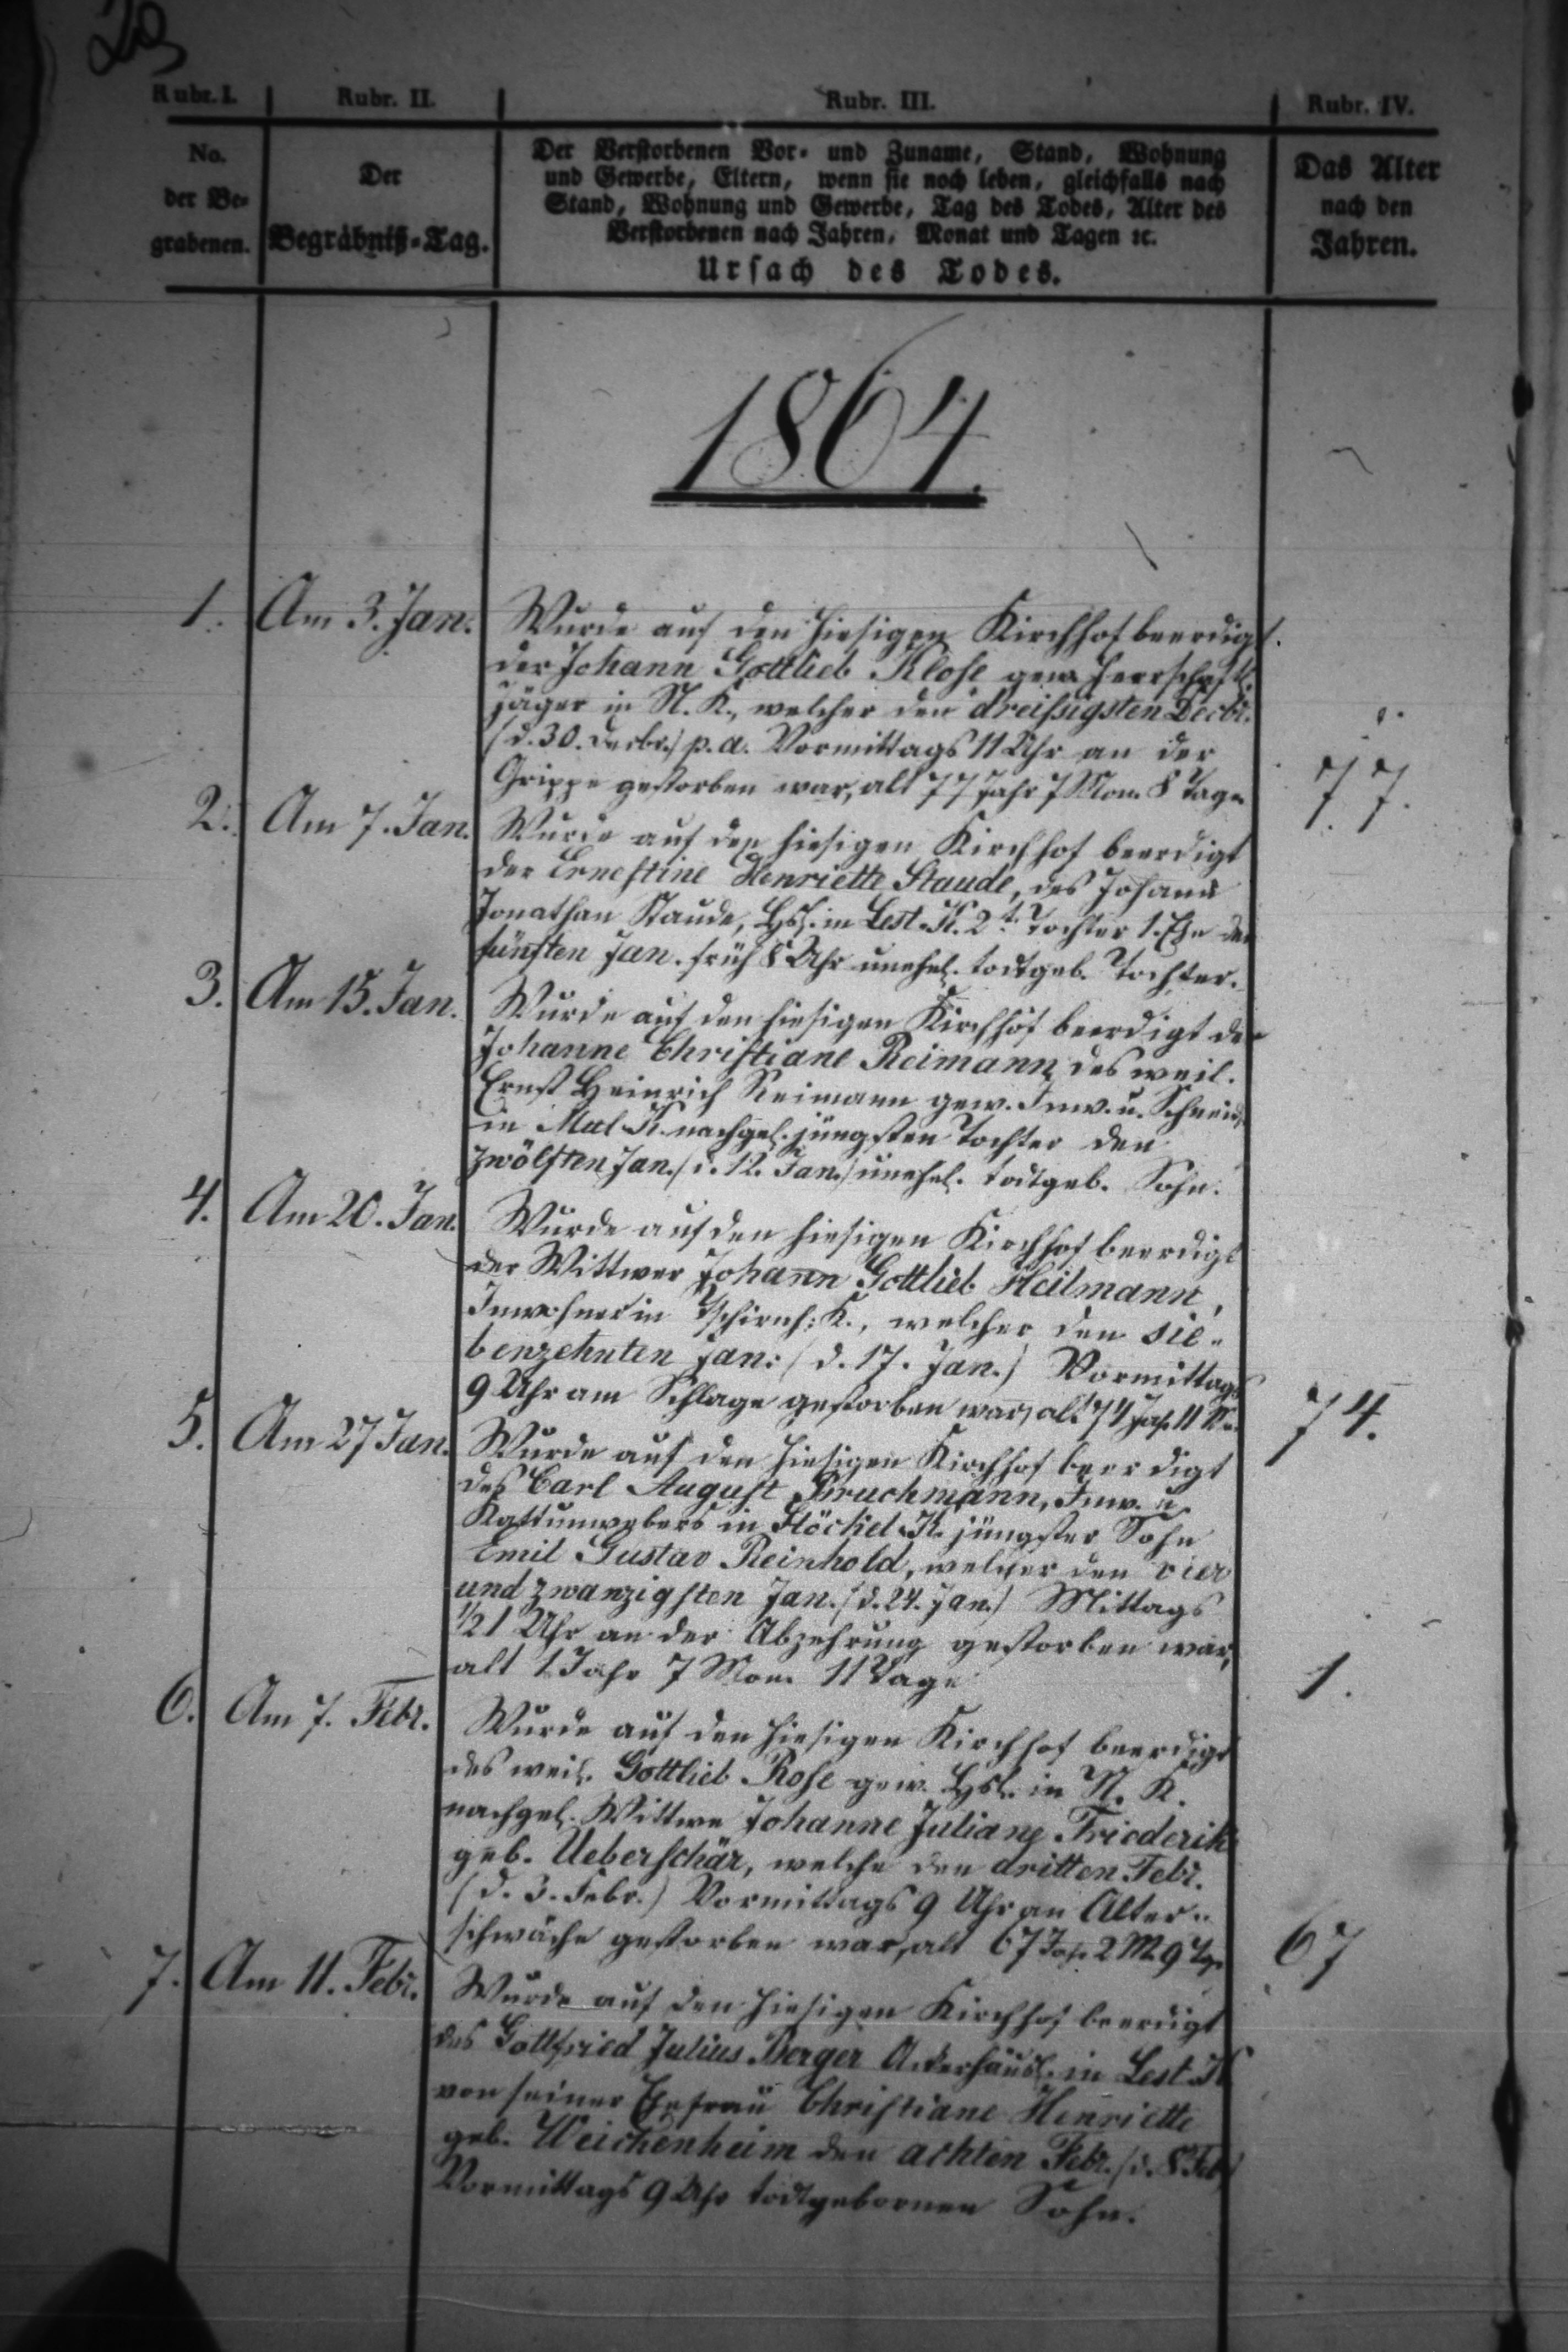 20
Rubr. I. Rubr. II. Rubr. III. Rubr. IV.
No. der Be- grabenen.
Der Begräbniß-Tag.
Der Verstorbenen Vor- und Zuname, Stand, Wohnung
und Gewerbe, Eltern, wenn sie noch leben, gleichfalls nach
Stand, Wohnung und Gewerbe, Tag des Todes, Alter des
Verstorbenen nach Jahren, Monat und Tagen ꝛc.
Ursach des Todes.
Das Alter nach den Jahren.
1864.
1. Am 3. Jan. Wurde auf den hiesigen Kirchhof beerdigt
der Johann Gottlieb Klose gew. herrschaftl.
Jäger in N. K., welcher den dreißigsten Decbr.
(d. 30. Decbr.) p. a. Vormittags 11 Uhr an der
Grippe gestorben war, alt 77 Jahr 7 Mon. 8 Tage 77.
2. Am 7. Jan. Wurde auf den hiesigen Kirchhof beerdigt
der Ernestine Henriette Staude, des Johann
Jonathan Staude, Hsl. in Lest. K. 2t. Tochter 1. Ehe den
fünften Jan. früh 8 Uhr unehel. todtgeb. Tochter.
3. Am 15. Jan. Wurde auf den hiesigen Kirchhof beerdigt der
Johanne Christiane Reimann, des weil.
Ernst Heinrich Reimann gew. Inw. u. Schneid.
in Mttl. K. nachgel. jüngsten Tochter den
zwölften Jan. (d. 12. Jan.) unehel. todtgeb. Sohn.
4. Am 20. Jan. Wurde auf den hiesigen Kirchhof beerdigt
der Wittwer Johann Gottlieb Heilmann,
Inwohner in Tschirnh: K., welcher den sie-
benzehnten Jan: (d. 17. Jan.) Vormittags
9 Uhr am Schlage gestorben war, alt 74 Jah. 11 M. 74.
5. Am 27 Jan. Wurde auf den hiesigen Kirchhof beerdigt
des Carl August Bruchmann, Inw. u.
Kattunwebers in Stöckel. K. jüngster Sohn
Emil Gustav Reinhold, welcher den vier
und zwanzigsten Jan. (d. 24. Jan.) Mittags
1/2 1 Uhr an der Abzehrung gestorben war,
alt 1 Jahr 7 Mon. 11 Tage 1.
6. Am 7. Febr. Wurde auf den hiesigen Kirchhof beerdigt
des weil. Gottlieb Rose gew. Hsl. in N. K.
nachgel. Wittwe Johanne Juliane Friederik
geb. Ueberschär, welche den dritten Febr.
(d. 3. Febr.) Vormittags 9 Uhr an Alter-
schwäche gestorben war, alt 67 Jah. 2 M. 9 Tg. 67
7. Am 11. Febr. Wurde auf den hiesigen Kirchhof beerdigt
des Gottfried Julius Berger Ackerhäusl. in Lest. K
von seiner Ehefrau Christiane Henriette
geb. Weichenheim den achten Febr. (d. 8 Feb)
Vormittags 9 Uhr todtgebornen Sohn.